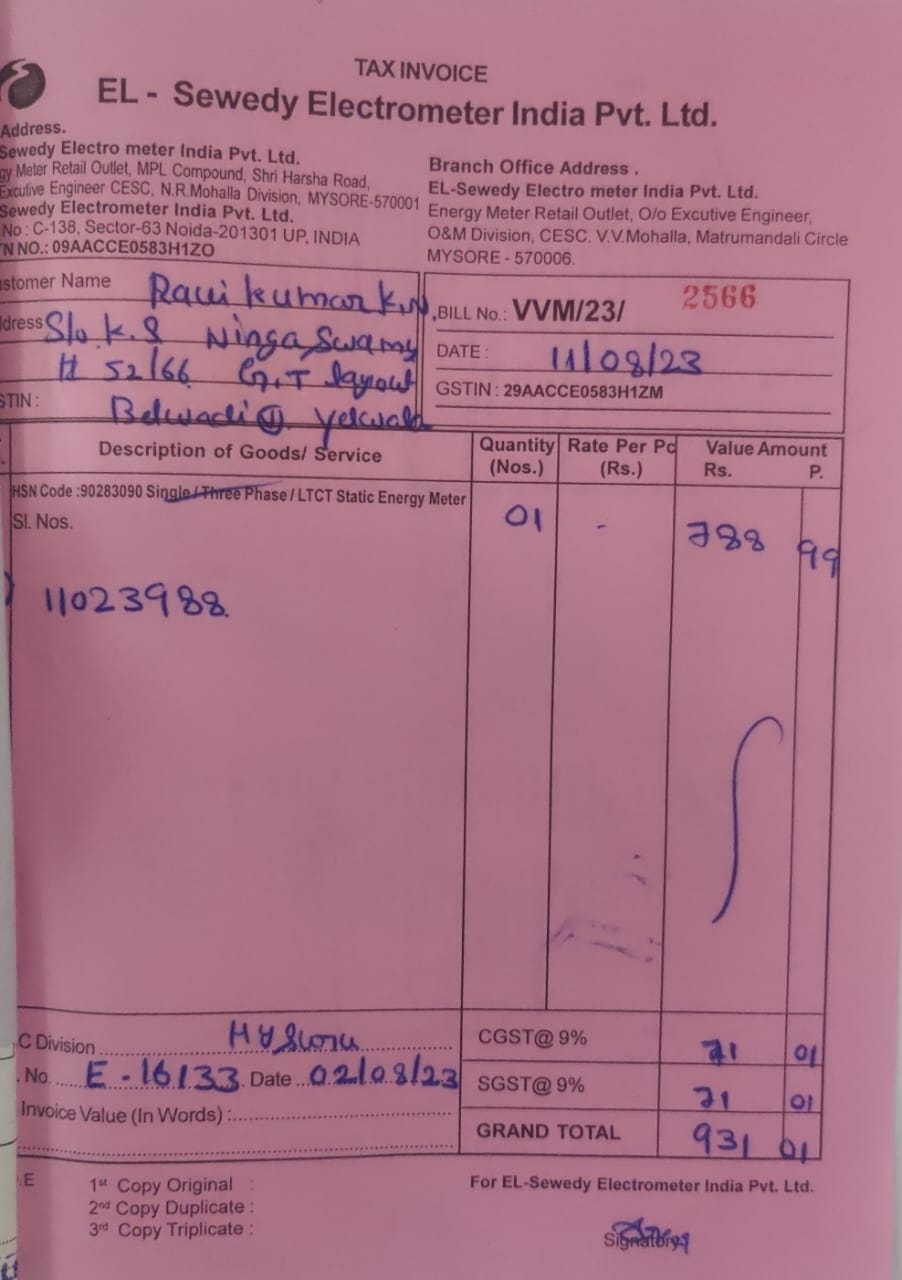 TAX INVOICE
EL - Sewedy Electrometer India Pvt. Ltd.
Address.
Sewedy Electro meter India Pvt. Ltd.
gy Meter Retail Outlet, MPL Compound, Shri Harsha Road,
Excutive Engineer CESC, N.R.Mohalla Division, MYSORE-570001
Sewedy Electrometer India Pvt. Ltd.
No : C-138, Sector-63 Noida-201301 UP, INDIA
TN NO.: 09AACCE0583H1ZO
Branch Office Address .
EL-Sewedy Electro meter India Pvt. Ltd.
Energy Meter Retail Outlet, O/o Excutive Engineer,
O&M Division, CESC. V.V.Mohalla, Matrumandali Circle
MYSORE - 570006.
stomer Name Ravi kumar K.N,
dress S/o. K.S Ninga Swamy
# 52/66 G.T layout
STIN : Belwadi Yelwala
BILL No.: VVM/23/ 2566
DATE : 11/08/23
GSTIN : 29AACCE0583H1ZM
Description of Goods/ Service Quantity (Nos.) Rate Per Pc (Rs.) Value Amount Rs. P.
HSN Code :90283090 Single / Three Phase / LTCT Static Energy Meter
Sl. Nos. 01 - 788 99
11023988.
C Division Mysoru
CGST@ 9% 71 01
. No. E - 16133. Date 02/08/23
SGST@ 9% 71 01
Invoice Value (In Words) :
GRAND TOTAL 931 01
.E
1st Copy Original :
2nd Copy Duplicate :
3rd Copy Triplicate :
For EL-Sewedy Electrometer India Pvt. Ltd.
Signatory